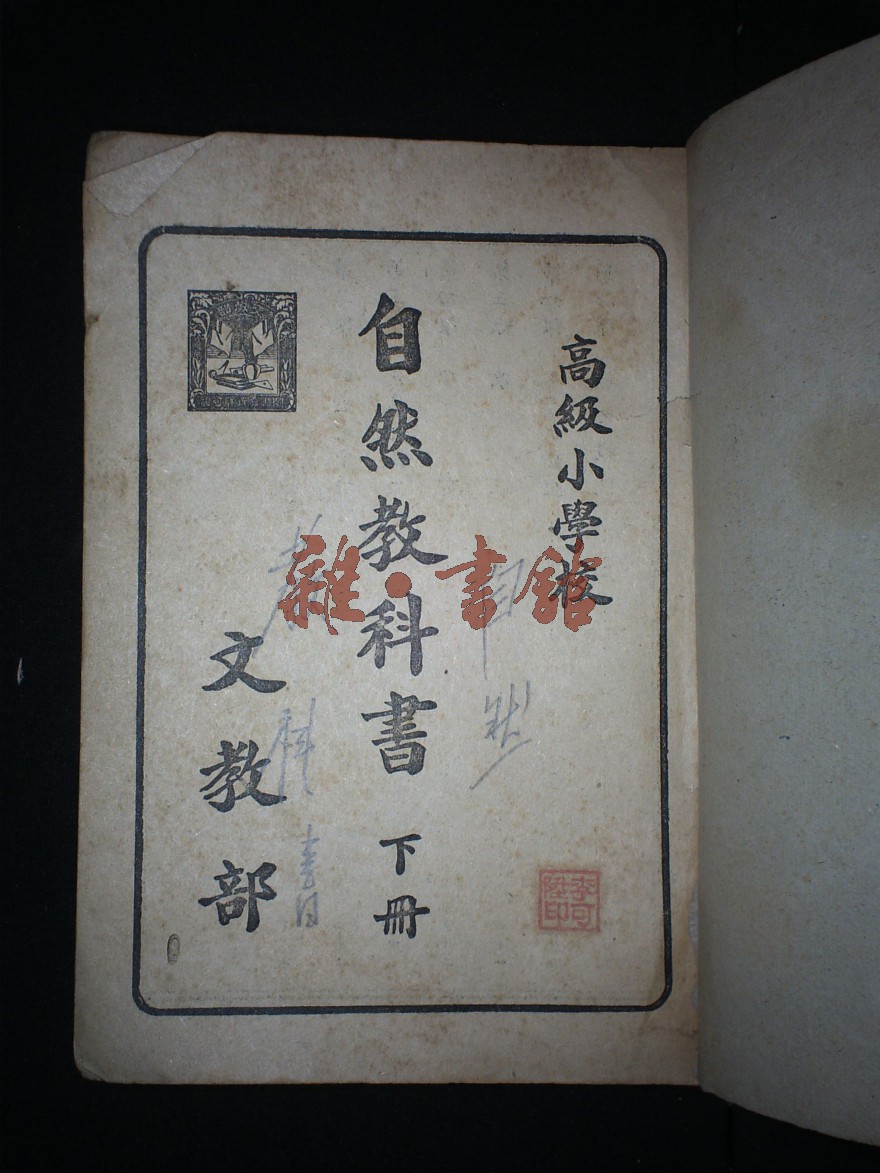 高級小學校
自然教科書 下冊
文教部
自然
教科書
雜·書館
李可
陞印